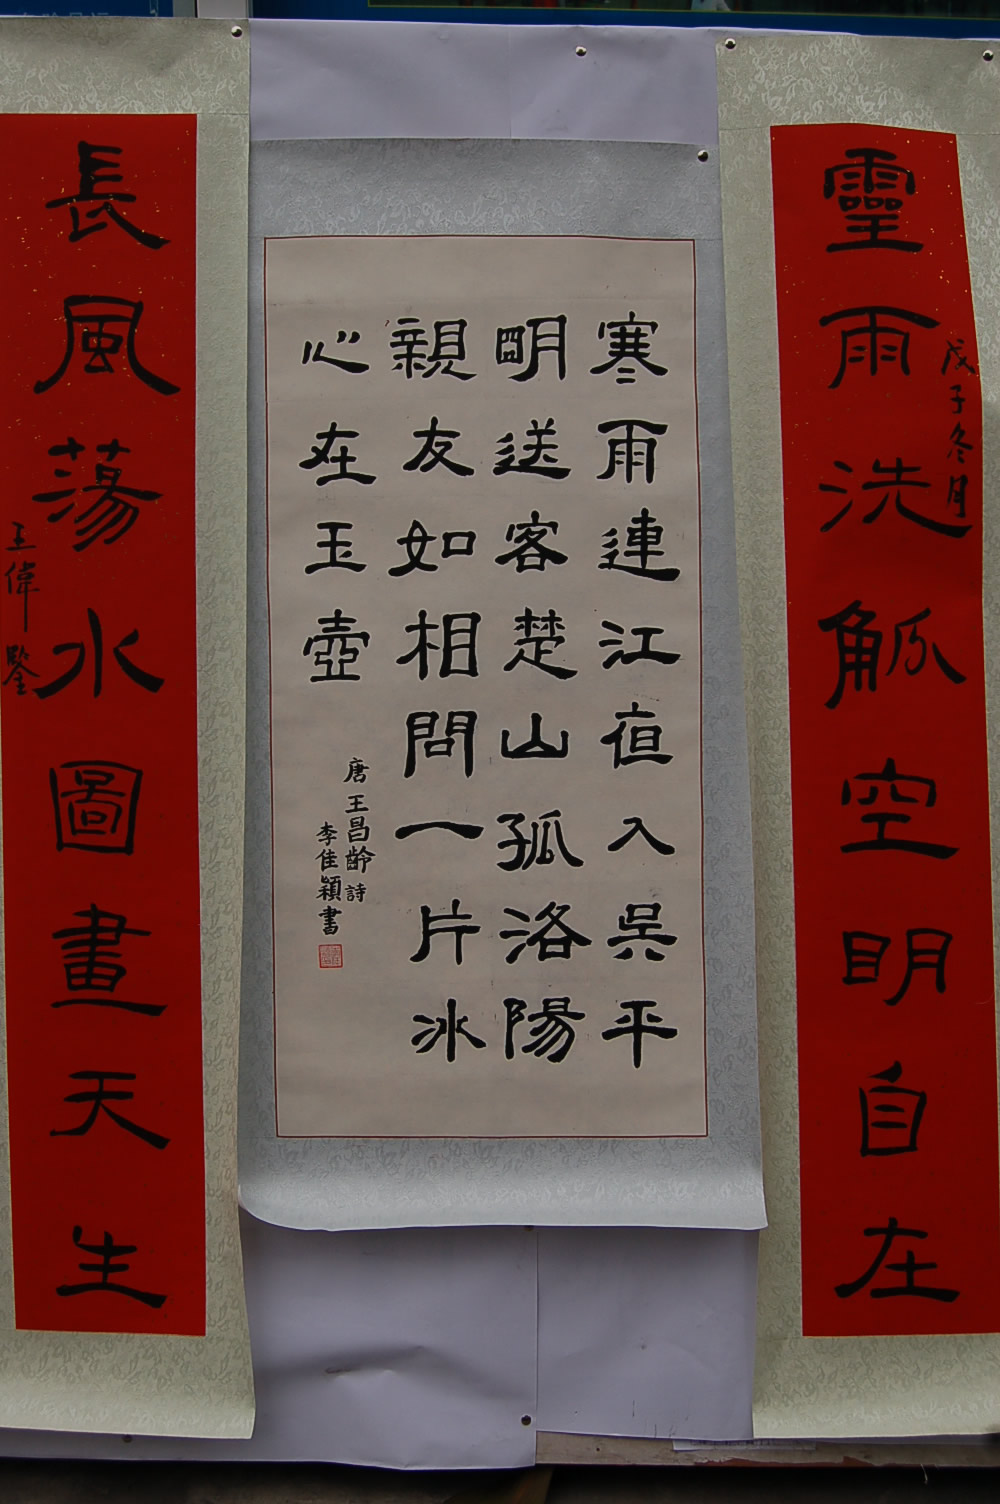 靈雨洗觚空明自在
戊子冬月
寒雨連江夜入吳平
明送客楚山孤洛陽
親友如相問一片冰
心在玉壺
唐王昌齡詩
李佳穎書
長風蕩水圖畫天生
王偉